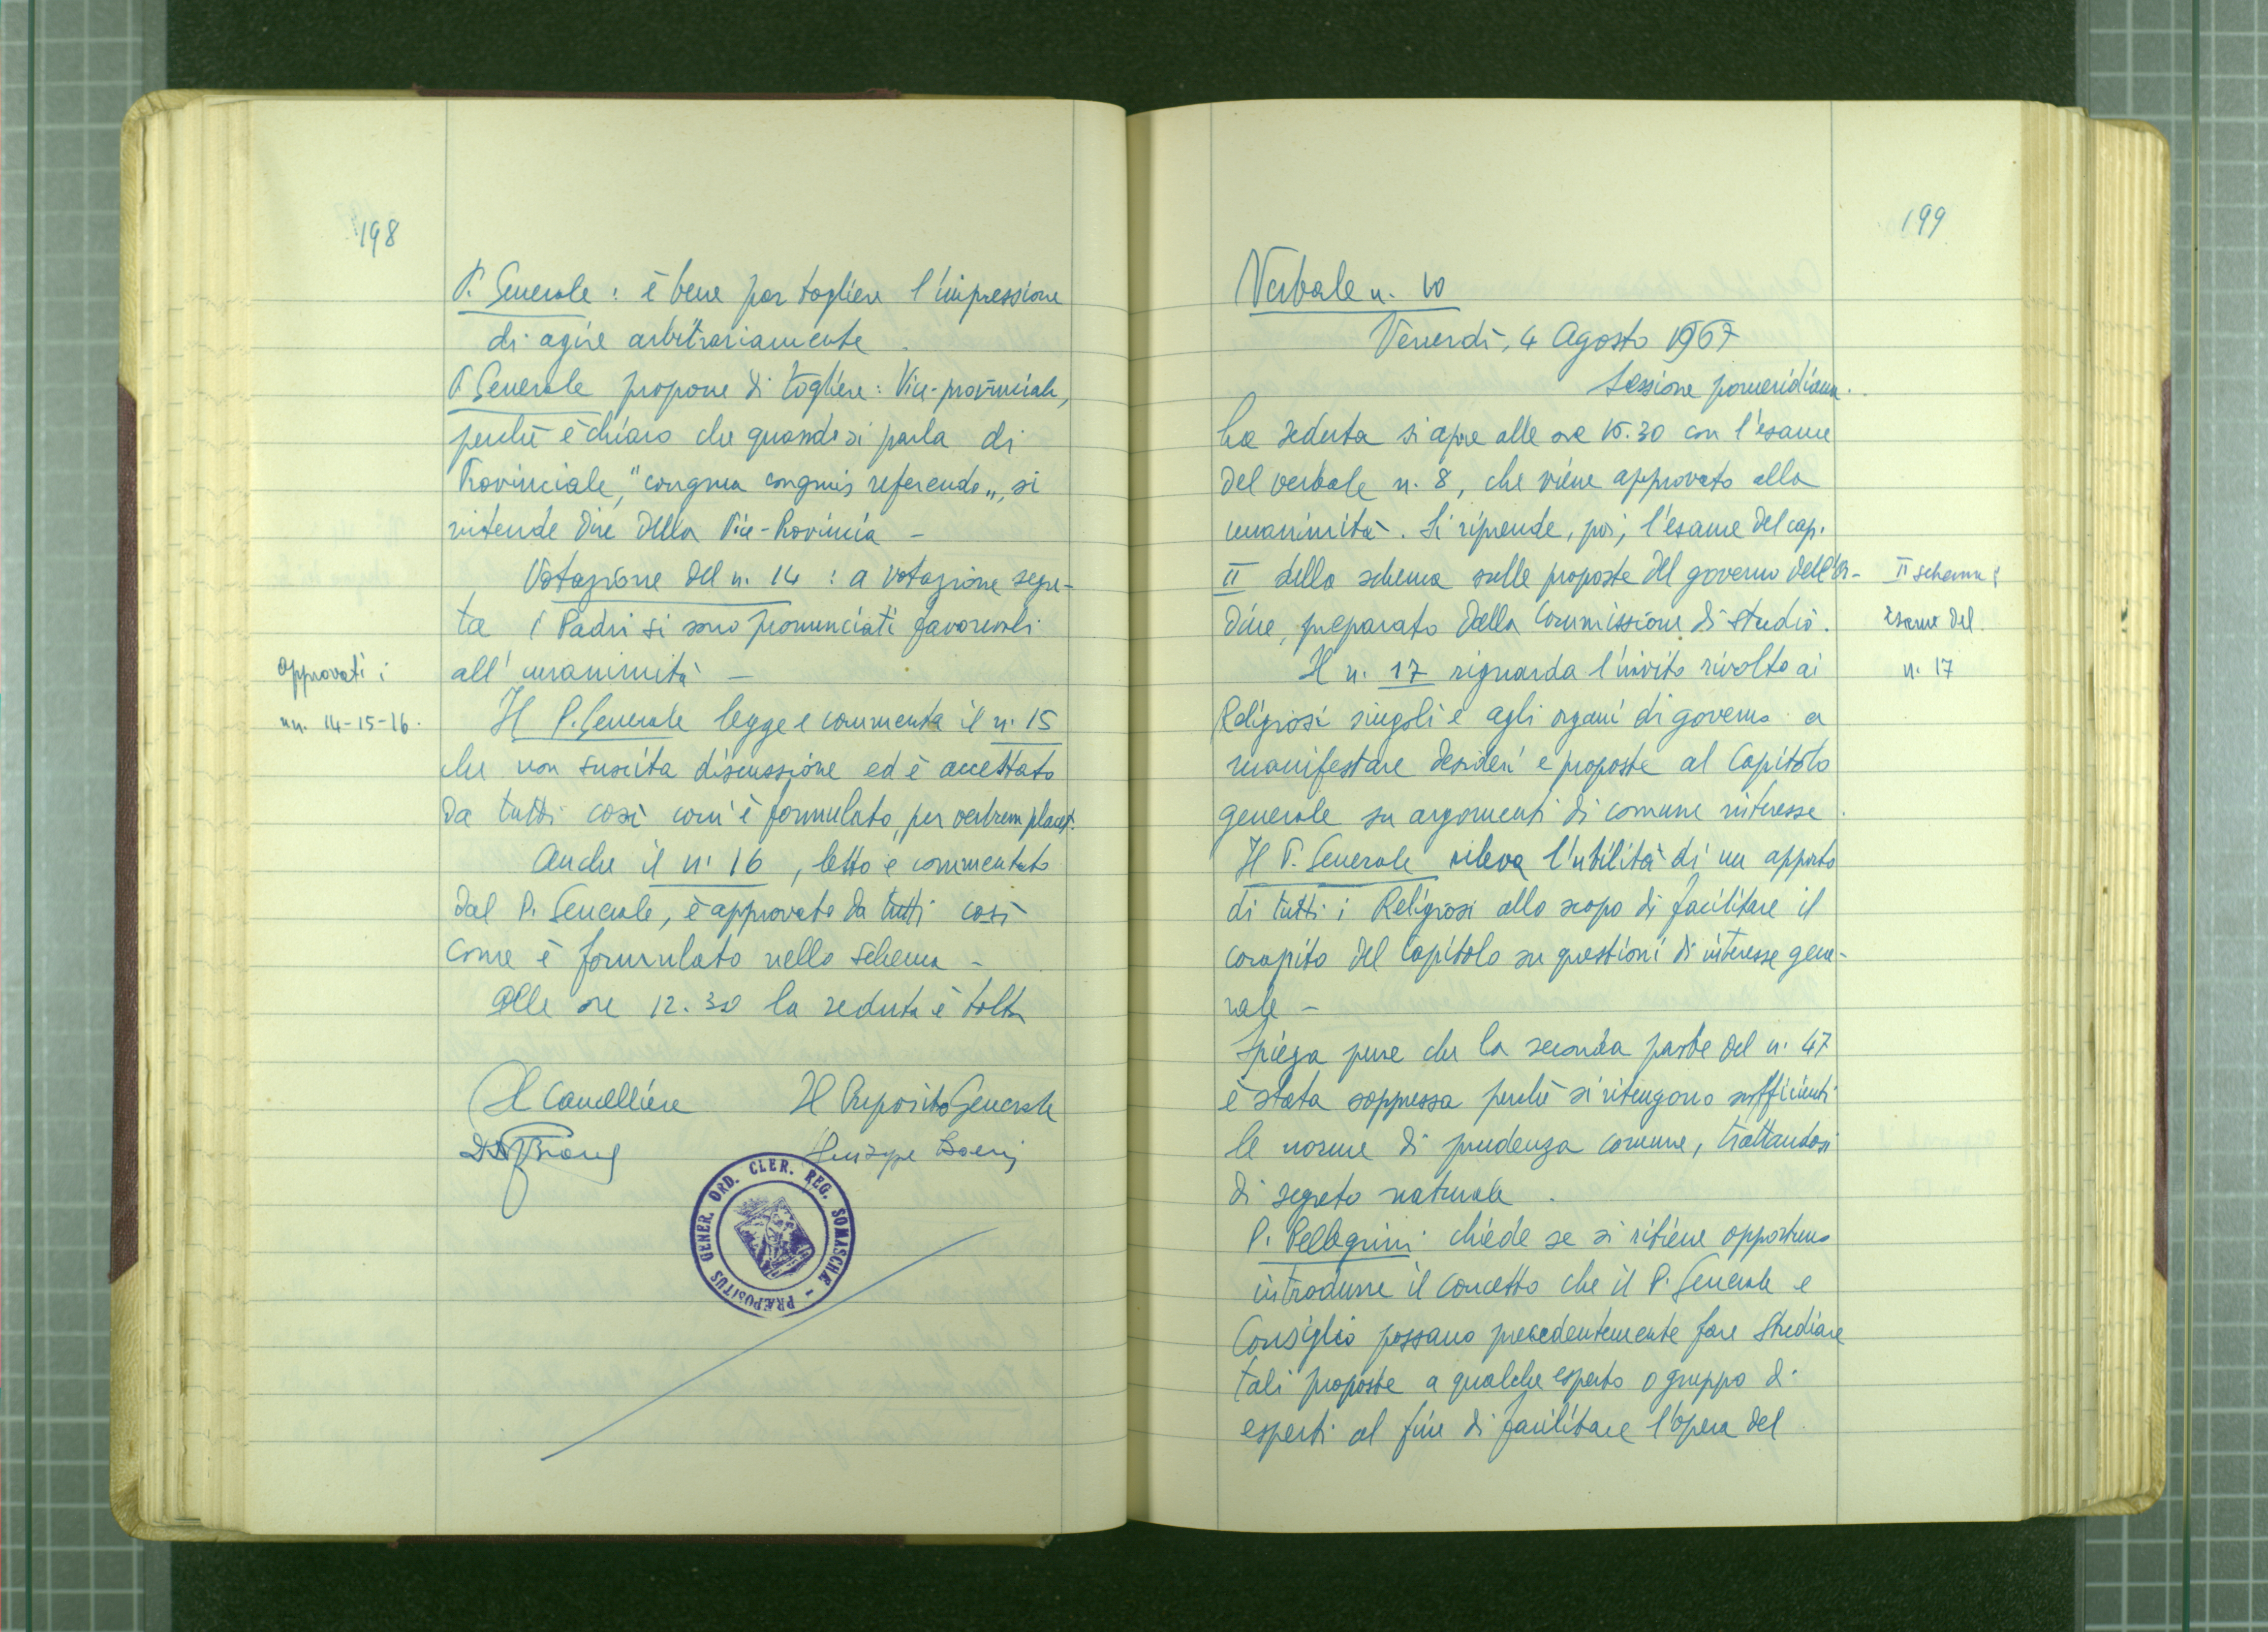 198
P. Generale : è bene per togliere l'impressione
di agire arbitrariamente.
P. Generale propone di togliere: Vice-provinciale,
perchè è chiaro che quando si parla di
Provinciale, "congrua congruis referendo", si
intende dire della Vice-Provincia -
Votazione del n. 14 : a votazione segre-
ta i Padri si sono pronunciati favorevoli
all'unanimità -
Approvati i
nn. 14-15-16.
Il P. Generale legge e commenta il n. 15
che non suscita discussione ed è accettato
da tutti così com'è formulato, per verbum placet.
Anche il n. 16, letto e commentato
dal P. Generale, è approvato da tutti così
come è formulato nello schema -
Alle ore 12.30 la seduta è tolta
Il Cancelliere Il Preposito Generale
Giuseppe Boeris
PRÆPOSITUS GENER. ORD. CLER. REG. SOMASCHÆ -
199
Verbale n. 10
Venerdì, 4 Agosto 1967
Sessione pomeridiana.
La seduta si apre alle ore 15.30 con l'esame
del verbale n. 8, che viene approvato alla
unanimità. Si riprende, poi, l'esame del cap.
II dello schema sulle proposte del governo dell'Or-
dine, preparato dalla Commissione di studio.
II schema:
esame del
n. 17
Il n. 17 riguarda l'invito rivolto ai
Religiosi singoli e agli organi di governo a
manifestare desideri e proposte al Capitolo
generale su argomenti di comune interesse.
Il P. Generale rileva l'utilità di un apporto
di tutti i Religiosi allo scopo di facilitare il
compito del Capitolo su questioni di interesse gene-
rale -
Spiega pure che la seconda parte del n. 47
è stata soppressa perchè si ritengono sufficienti
le norme di prudenza comune, trattandosi
di segreto naturale.
P. Pellegrini chiede se si ritiene opportuno
introdurre il concetto che il P. Generale e
Consiglio possano precedentemente fare studiare
tali proposte a qualche esperto o gruppo di
esperti al fine di facilitare l'opera del